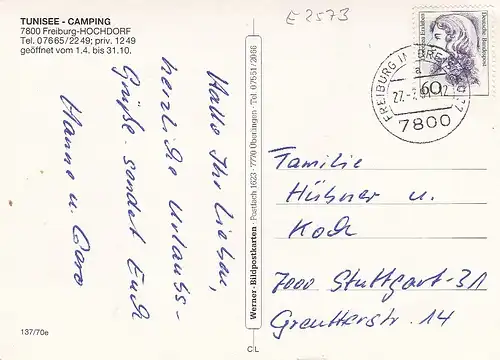 TUNISEE - CAMPING
7800 Freiburg-HOCHDORF
Tel. 07665/2249; priv. 1249
geöffnet vom 1.4. bis 31.10.
E 2573
Hallo Ihr Lieben,
herzliche Urlaubs-
Grüße sendet Euch
Hanne u.
137/70e
Werner-Bildpostkarten · Postfach 1623 · 7770 Überlingen · Tel. 07551/2866
C/L
Deutsche Bundespost
60
FREIBURG IM BREISGAU
a
27.-7.
7800
Familie
Hübner u.
Koch
7000 Stuttgart-31
Greutterstr. 14